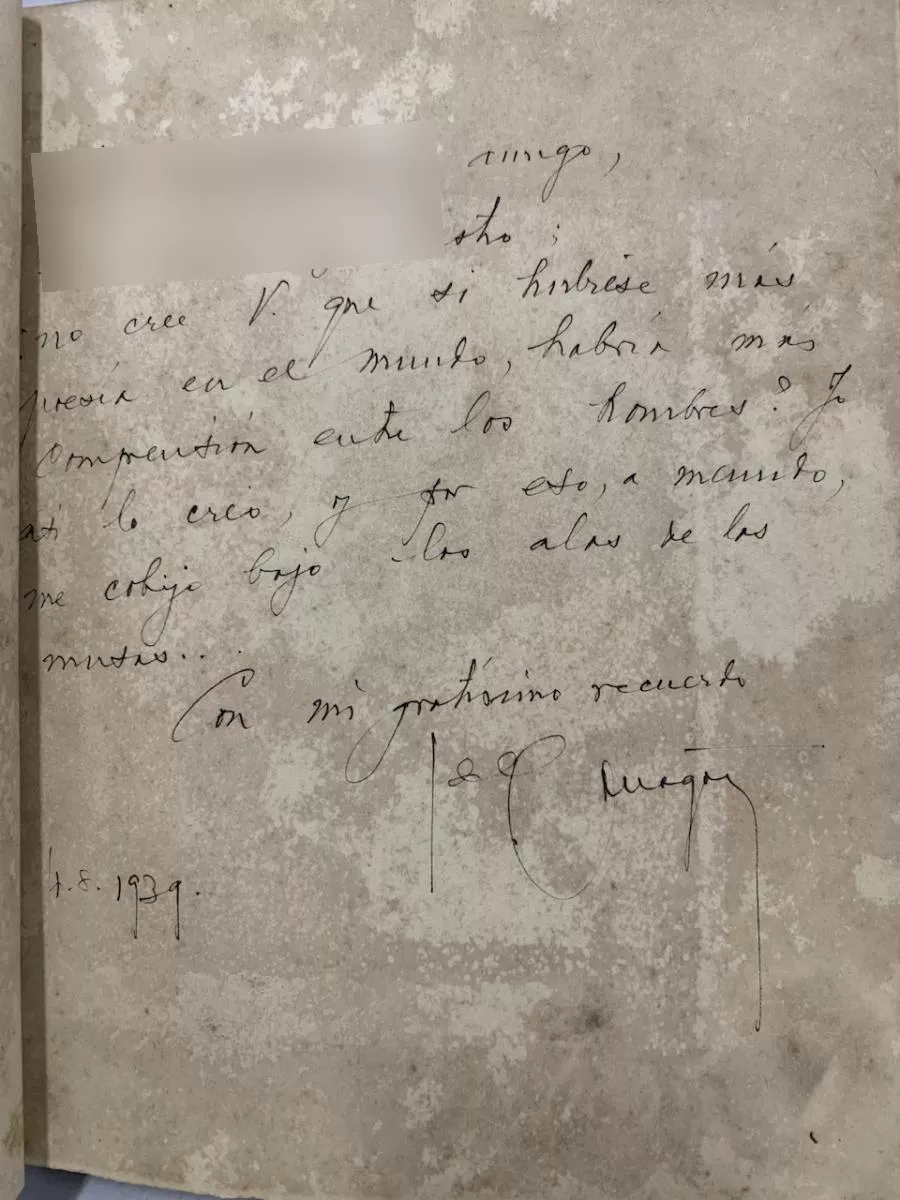 amigo,
stro:
¿no cree V. que si hubiese más
poesía en el mundo, habría más
comprensión entre los hombres? Yo
así lo creo, y por eso, a menudo,
me cobijo bajo las alas de las
musas...
Con mi gratísimo recuerdo
4.8.1939.